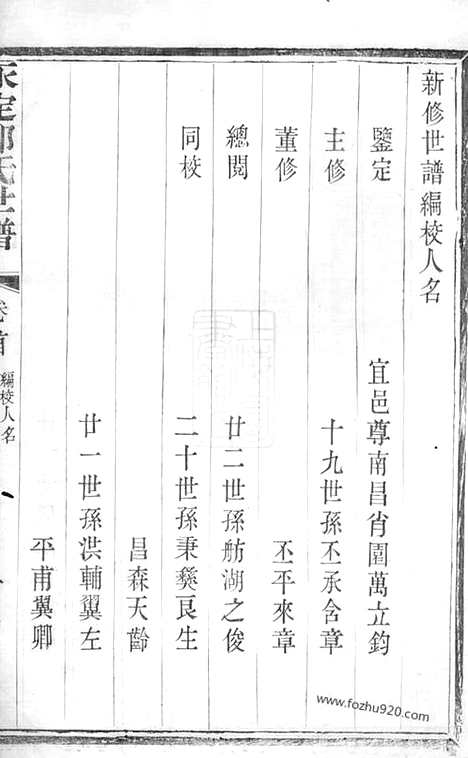 新修世譜編校人名
鑒定　宜邑尊南昌肖園萬立鈞
主修　十九世孫丕承含章
董修　丕平來章
總閱　廿二世孫舫湖之俊
同校　二十世孫秉彝良生
昌森天齡
廿一世孫洪輔翼左
平甫翼卿
氏世譜
首
編校人名
八
www.fozhu920.com